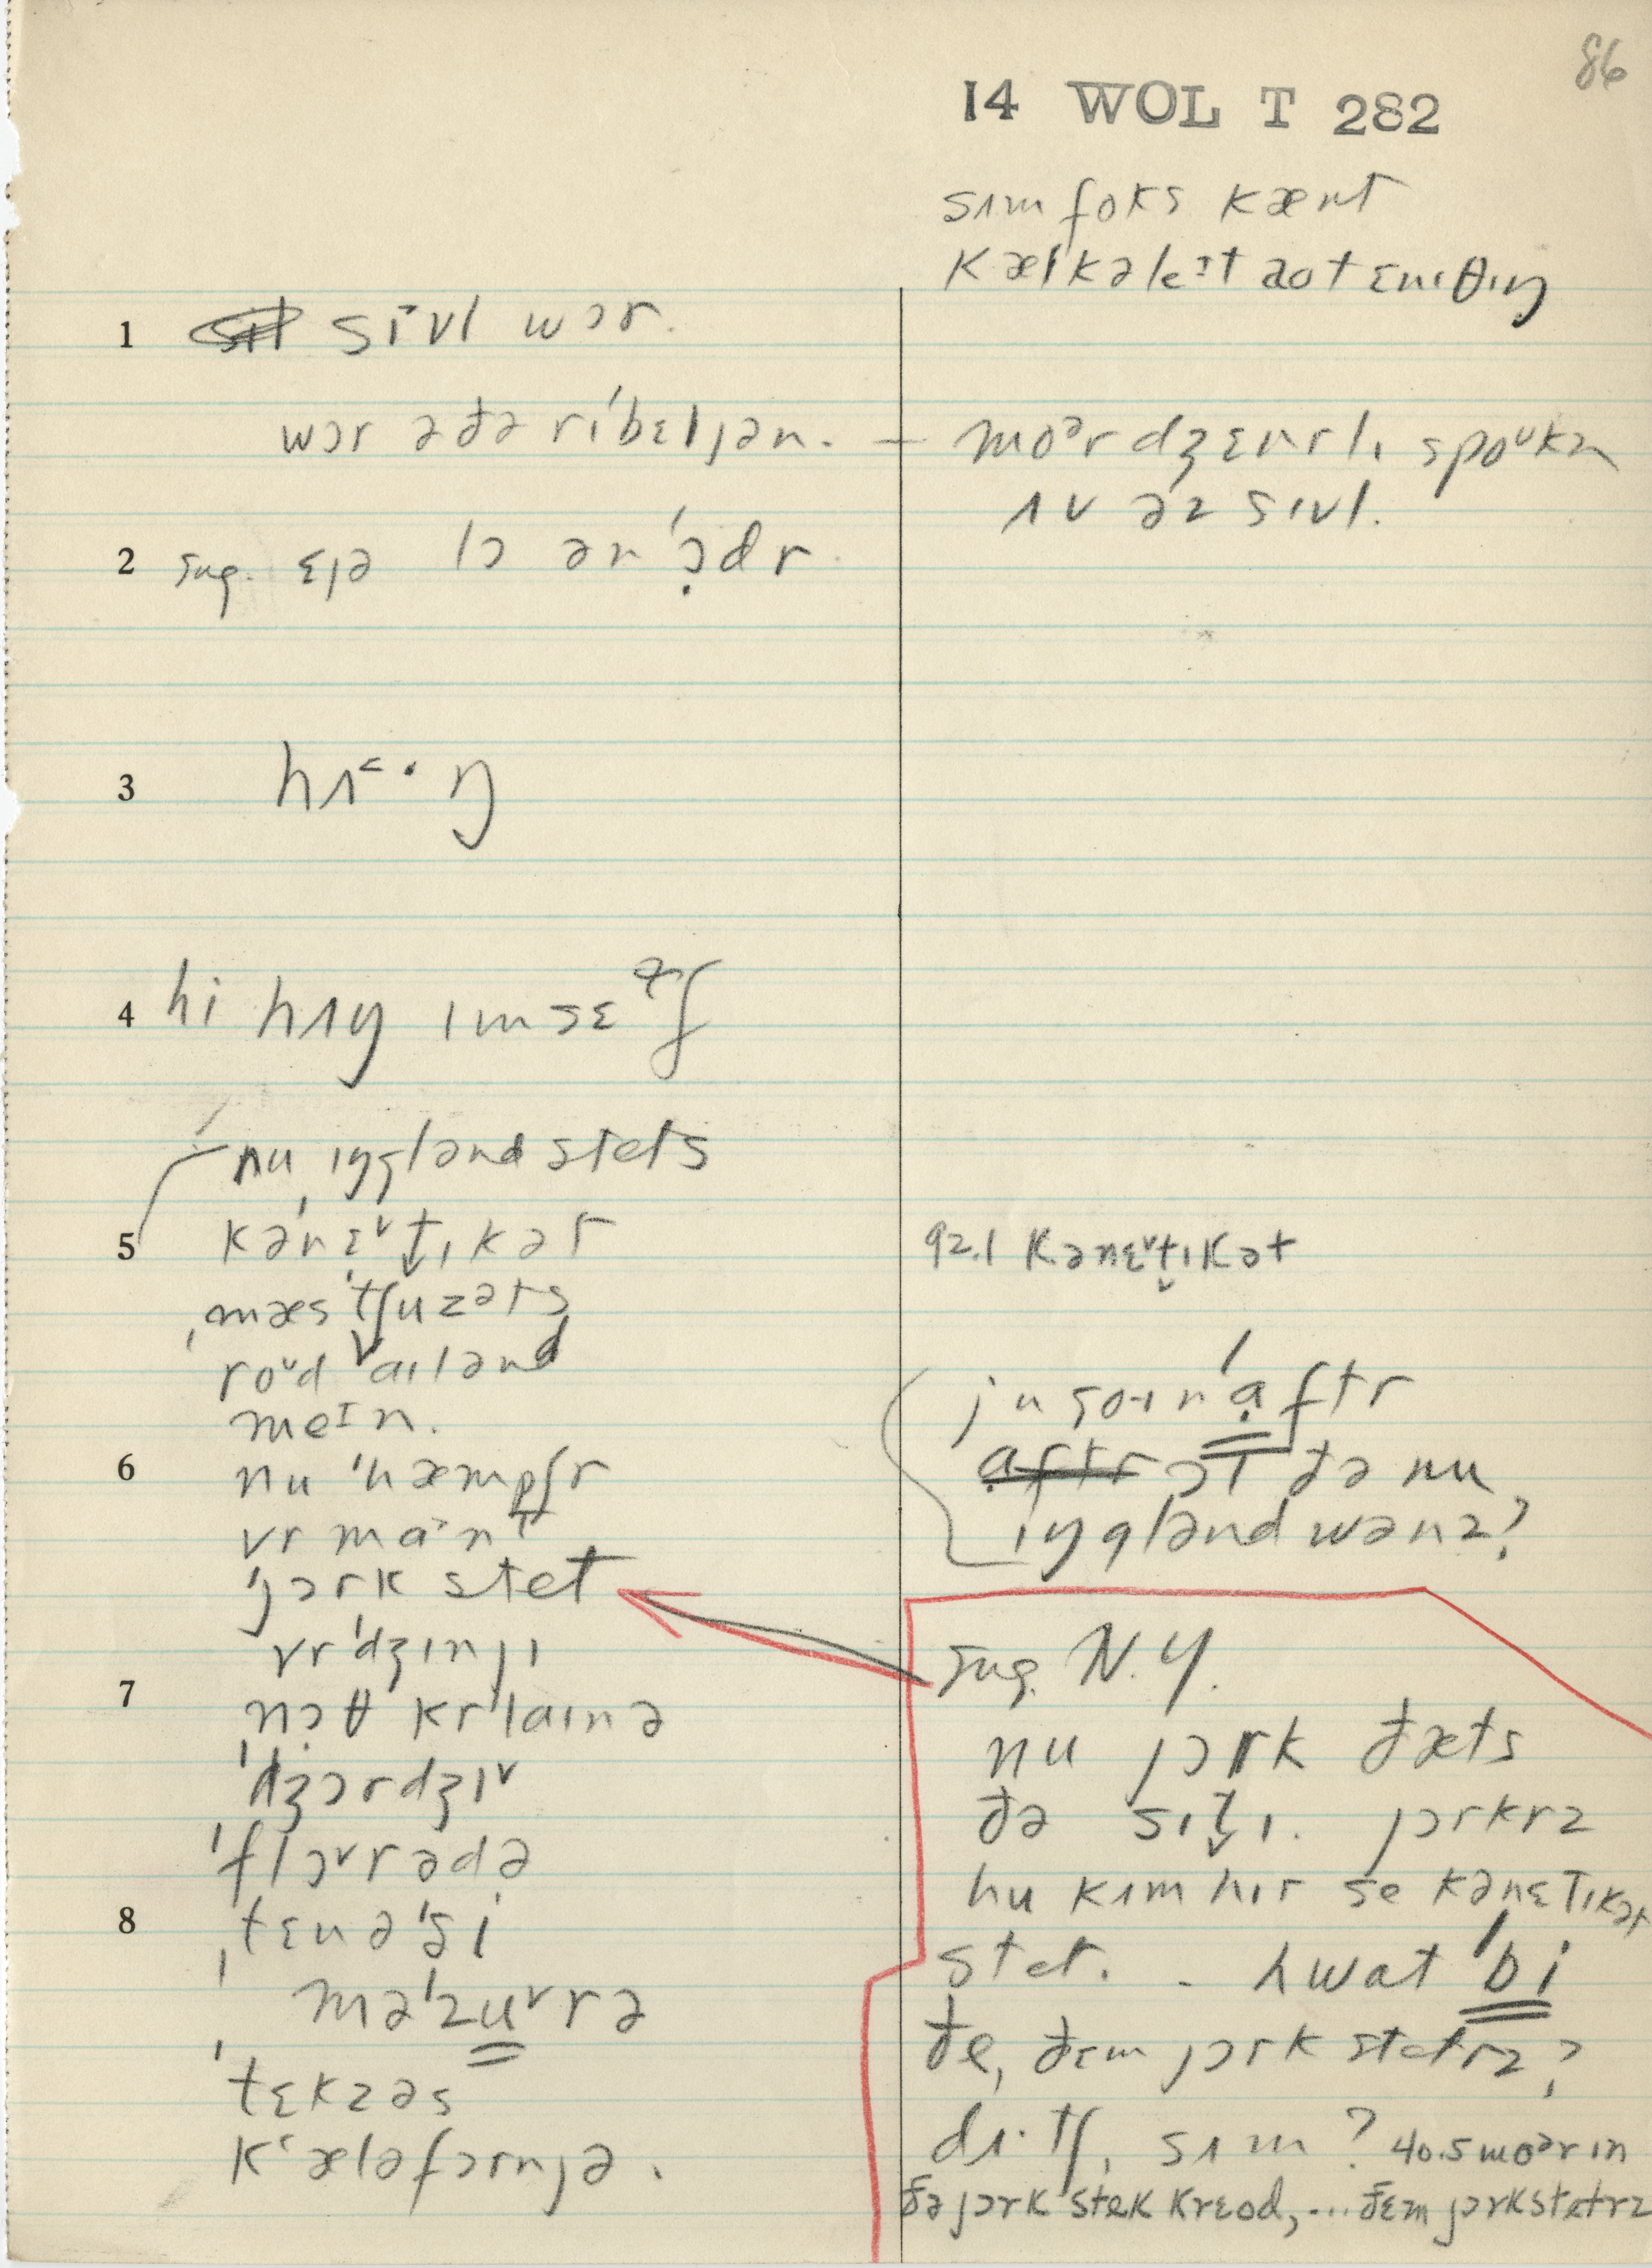 86
14 WOL T 282
sʌm foks kænt
kælkəleɪt aot ɛnɪθɪŋ
1 sɪvl wɔr.
wɔr ə ðə rɪ'bɛljən. — moᵊr dʒɛnrlɪ spoᵁkn
ʌv əz sɪvl.
2 sug. ɛjə lɔ ən 'ɔ̣dr
3 hʌ˂·ŋ
4 hi hʌŋ ɪmsɛᵊf
nu ˌɪŋglənd stets
5 kə'nɛˇt̬ɪkət
ˌmæs'tʃuzəts
roᵁd ˇaɪlənd
meɪn.
6 nu 'hæmpʃr
vrmaˑnt
'jɔrk stet
vr'dʒɪnjɪ
7 ˌnɔθ kr'laɪnə
'dʒɔrdʒɪˇ
'flɔˇrədə
8 ˌtɛnə'si
mə'zuˇrə
'tɛkzəs
kʻæləfɔrnjə.
92.1 kənɛˇt̬ɪkət
ju goɪn 'ạftr
ɔt ðə nu
ɪŋglənd wənz?
sug. N.Y.
nu jɔrk ðæts
ðə sɪt̬ɪ. jɔrkrz
hu kʌm hɪr se kənɛtɪkət
stet. - hwat 'bi
ðe, ðɛm jɔrk stetrz?
dʌˑtʃ, sʌm? 40.5 moᵊr ɪn
ðə jɔrk stek krɛod, ... ðɛm jɔrk stetrz